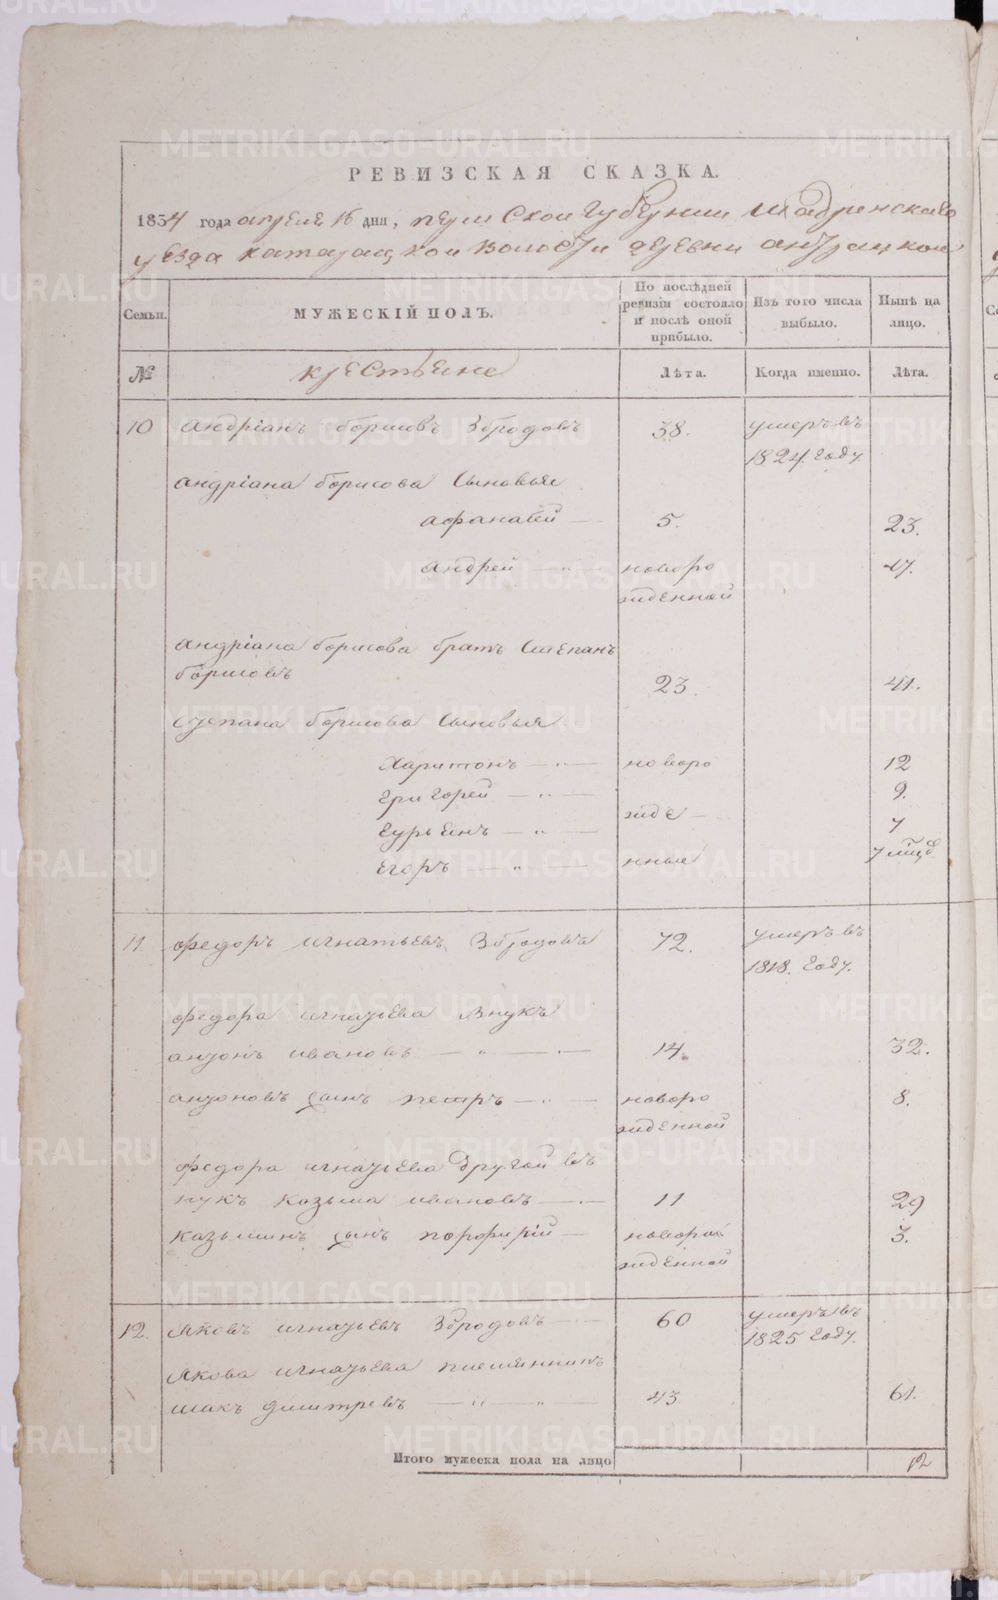 РЕВИЗСКАЯ СКАЗКА.
1834 года апреле 16 дня, пермской губернии шадринскаго
уезда катайской волости деревни
Семьи. МУЖЕСКІЙ ПОЛЪ. По послѣдней ревизіи состояло и послѣ оной прибыло. Изъ того числа выбыло. Нынѣ на лицо.
№ крестьяне Лѣта. Когда именно. Лѣта.
10 андріанъ борисовъ Збродовъ 38. умеръ въ
1824. году
андріана борисова Сыновья
афанасей 5. 23.
андрей — " — новоро 17.
жденной
андріана борисова братъ Степанъ
борисовъ 23. 41.
степана борисова Сыновья
харитонъ — " — новоро 12
григорей — " — 9.
жде
гурьянъ — " — 7
егоръ " — нные
11. федоръ игнатьевъ Збродовъ 72. умеръ въ
1818. году.
федора игнатьева внукъ
антонъ ивановъ — " — 14. 32.
антоновъ сынъ петръ — " — новоро 8.
жденной
федора игнатьева другой въ
нукъ козьма ивановъ — 11 29
козьминъ сынъ порфирій — новоро 3.
жденной
12. яковъ игнатьевъ Збродовъ 60 умеръ въ
1825 году.
якова игнатьева племянникъ
исакъ дмитревъ — " — " — 43 61.
Итого мужеска пола на лицо 12
METRIKI.GASO-URAL.RU